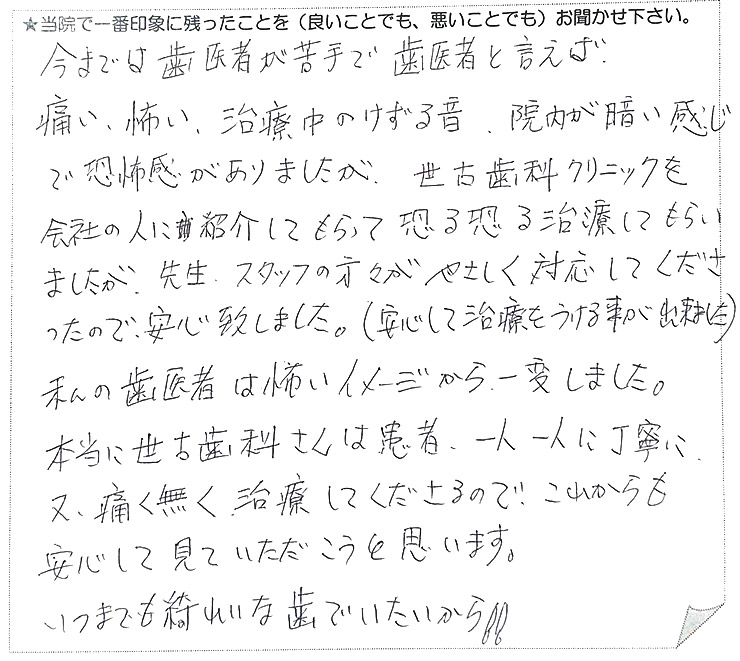 ★当院で一番印象に残ったことを（良いことでも、悪いことでも）お聞かせ下さい。
今までは歯医者が苦手で歯医者と言えば、
痛い、怖い、治療中のけずる音、院内が暗い感じ
で恐怖感がありましたが、世古歯科クリニックを
会社の人に紹介してもらって恐る恐る治療してもらい
ましたが、先生、スタッフの方々がやさしく対応してくださ
ったので、安心致しました。(安心して治療をうける事が出来ました)
私の歯医者は怖いイメージから、一変しました。
本当に世古歯科さんは患者、一人一人に丁寧に、
又、痛く無く、治療してくださるので、これからも
安心して見ていただこうと思います。
いつまでも綺れいな歯でいたいから!!